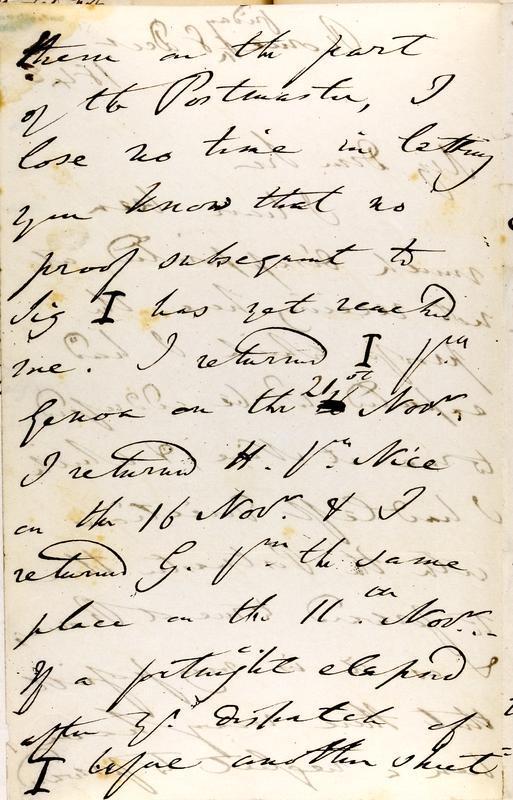 them on the part
of the Postmaster, I
lose no time in letting
you know that no
proof subsequent to
Sig I has yet reached
me. I returned I frm
Genoa on the 21st Novr.
I returned H. frm Nice
on the 16 Novr. & I
returned G. frm the same
place on the 11th Novr.
If a fortnight elapsed
after yr. dispatch of
I before another sheet